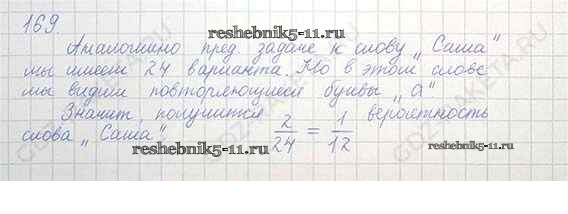 169.
reshebnik5-11.ru
Аналогично пред. задаче к слову „Саша"
мы имеем 24 варианта. Но в этом слове
мы видим повторяющиеся буквы „а"
Значит, получится 2/24 = 1/12 вероятность
слова „Саша"
reshebnik5-11.ru
reshebnik5-11.ru
GDZ-RAKETA.RU